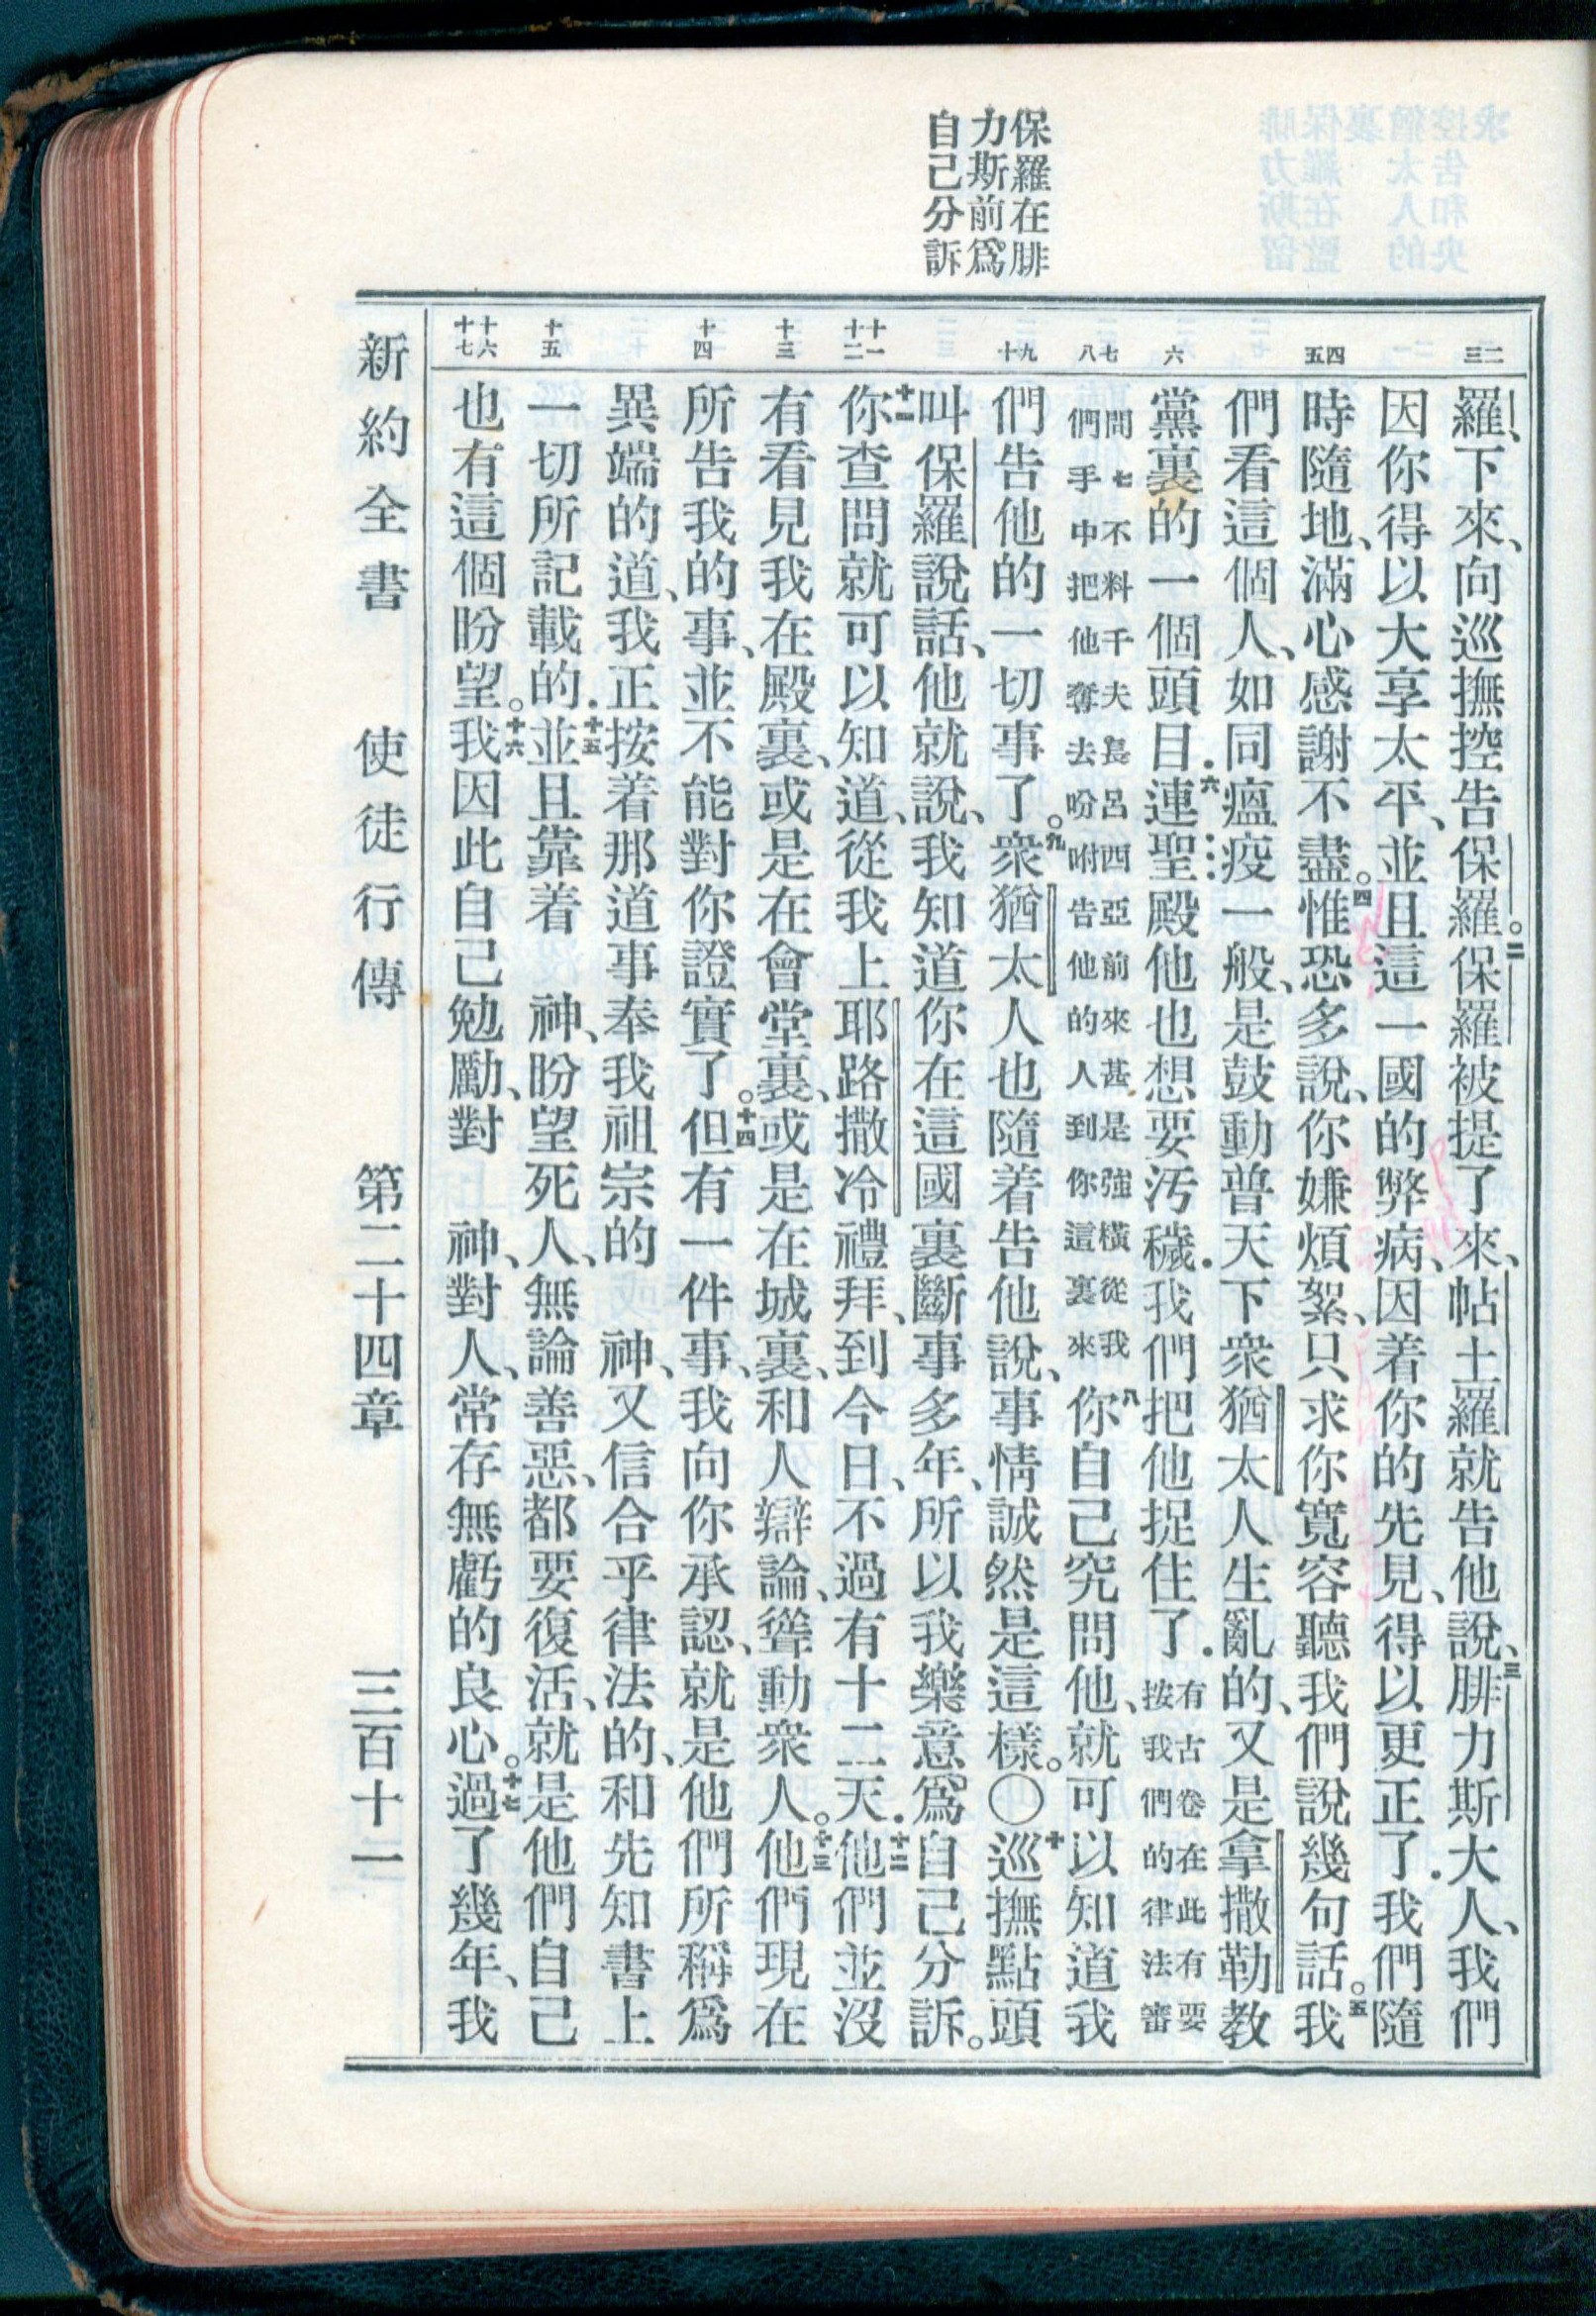 保羅在腓
力斯前爲
自己分訴
二三
四五
六
七八
九十
十一十二
十三
十四
十五
十六十七
羅、下來、向巡撫控告保羅。二保羅被提了來、帖土羅就告他說、三腓力斯大人、我們
因你得以大享太平、並且這一國的弊病、因着你的先見、得以更正了．我們隨
時隨地、滿心感謝不盡。四惟恐多說、你嫌煩絮、只求你寬容聽我們說幾句話。五我
們看這個人、如同瘟疫一般、是鼓動普天下衆猶太人生亂的、又是拿撒勒教
黨裏的一個頭目．六連聖殿他也想要汚穢．我們把他捉住了．有古卷在此有要按我們的律法審
問七不料千夫長呂西亞前來甚是強橫從我們手中把他奪去吩咐告他的人到你這裏來八你自己究問他、就可以知道我
們告他的一切事了。九衆猶太人也隨着告他說、事情誠然是這樣。〇十巡撫點頭
叫保羅說話、他就說、我知道你在這國裏斷事多年、所以我樂意爲自己分訴。
十一你查問就可以知道、從我上耶路撒冷禮拜、到今日、不過有十二天．十二他們並沒
有看見我在殿裏、或是在會堂裏、或是在城裏、和人辯論、聳動衆人。十三他們現在
所告我的事、並不能對你證實了。十四但有一件事、我向你承認、就是他們所稱爲
異端的道、我正按着那道事奉我祖宗的　神、又信合乎律法的、和先知書上
一切所記載的．十五並且靠着　神、盼望死人、無論善惡、都要復活、就是他們自己
也有這個盼望。十六我因此自己勉勵、對　神、對人、常存無虧的良心。十七過了幾年、我
新約全書　使徒行傳　第二十四章　三百十一